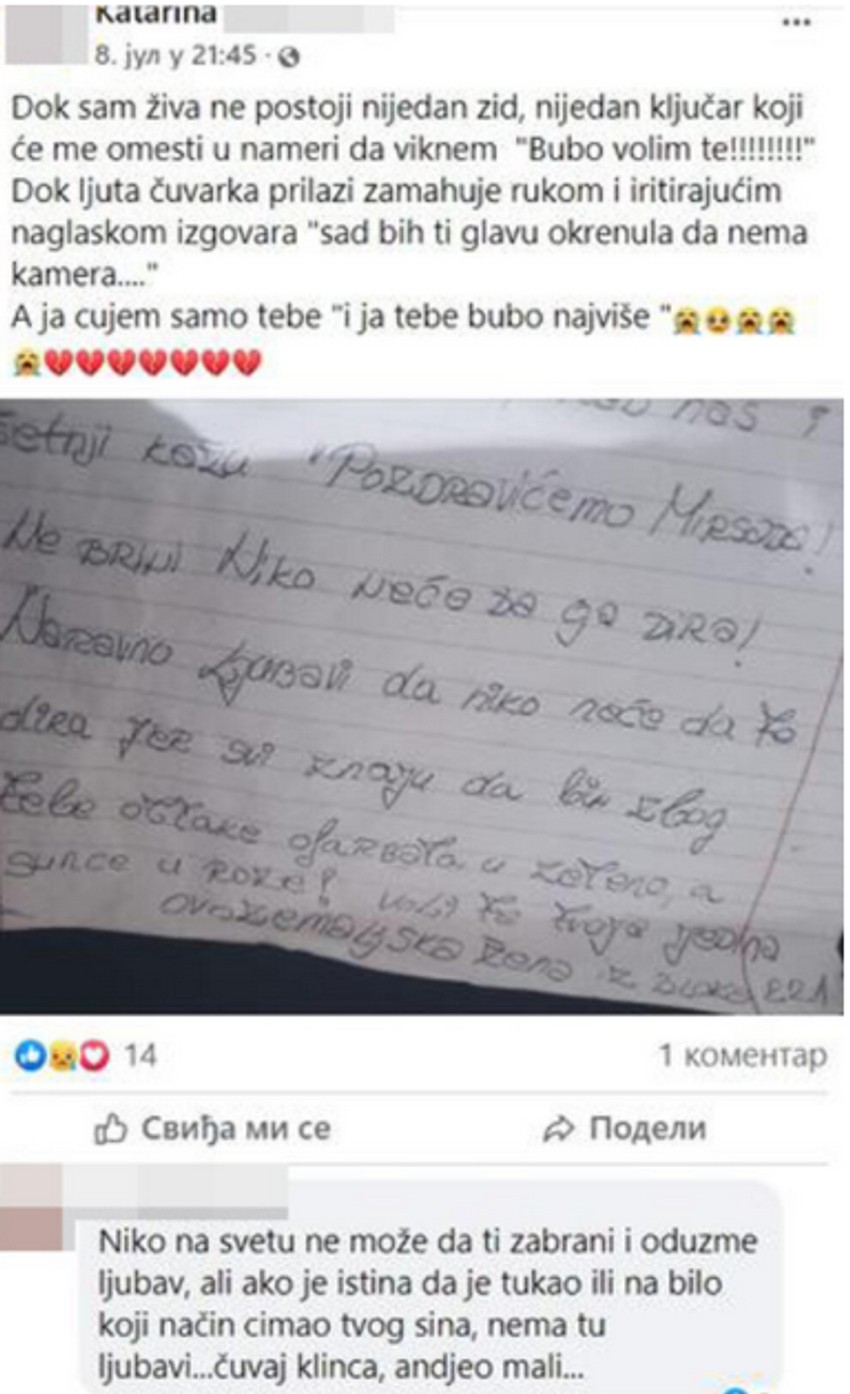 Katarina
8. јул у 21:45 ·
...
Dok sam živa ne postoji nijedan zid, nijedan ključar koji
će me omesti u nameri da viknem "Bubo volim te!!!!!!!!"
Dok ljuta čuvarka prilazi zamahuje rukom i iritirajućim
naglaskom izgovara "sad bih ti glavu okrenula da nema
kamera...."
A ja cujem samo tebe "i ja tebe bubo najviše "😭🥺😭😭
😭💔💔💔💔💔💔💔
nas ?
šetnji kažu "Pozdravićemo Mirsada!
Ne brini Niko neće da ga dira!
Naravno ljubavi da niko neće da te
dira jer svi znaju da bih zbog
tebe oblake ofarbala u zeleno, a
sunce u roze! Voli te tvoja jedina
ovozemaljska žena iz bloka 221
14
1 коментар
Свиђа ми се
Подели
Niko na svetu ne može da ti zabrani i oduzme
ljubav, ali ako je istina da je tukao ili na bilo
koji način cimao tvog sina, nema tu
ljubavi...čuvaj klinca, andjeo mali...